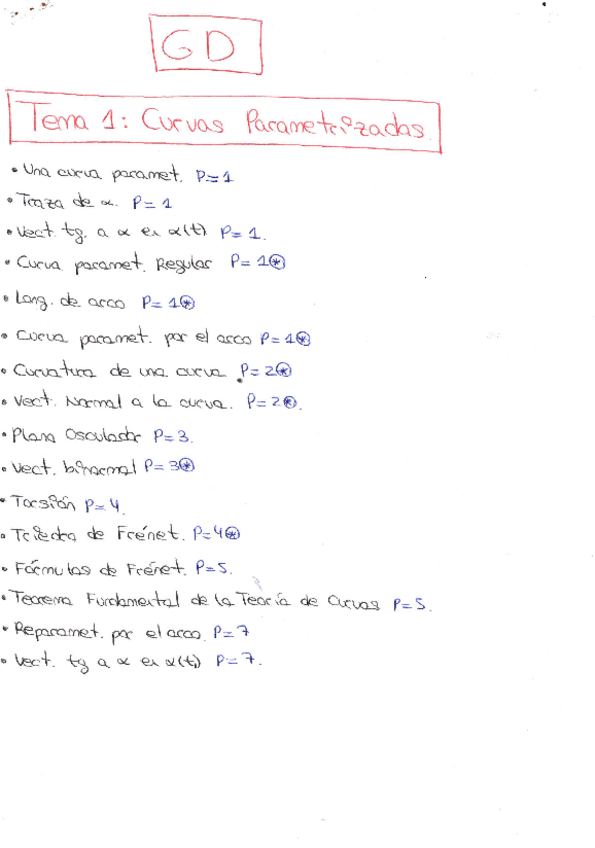 GD
Tema 1: Curvas Parametrizadas.
• Una curva paramet. P=1
• Traza de α. P=1
• Vect. tg. a α en α(t). P=1.
• Curva paramet. Regular P=1⊛
• Long. de arco P=1⊛
• Curva paramet. por el arco P=1⊛
• Curvatura de una curva P=2⊛
• Vect. Normal a la curva. P=2⊛.
• Plano Osculador P=3.
• Vect. binormal P=3⊛
• Torsión P=4.
• Triedro de Frénet. P=4⊛
• Fórmulas de Frénet. P=5.
• Teorema Fundamental de la Teoría de Curvas P=5.
• Reparamet. por el arco. P=7
• Vect. tg a α en α(t) P=7.